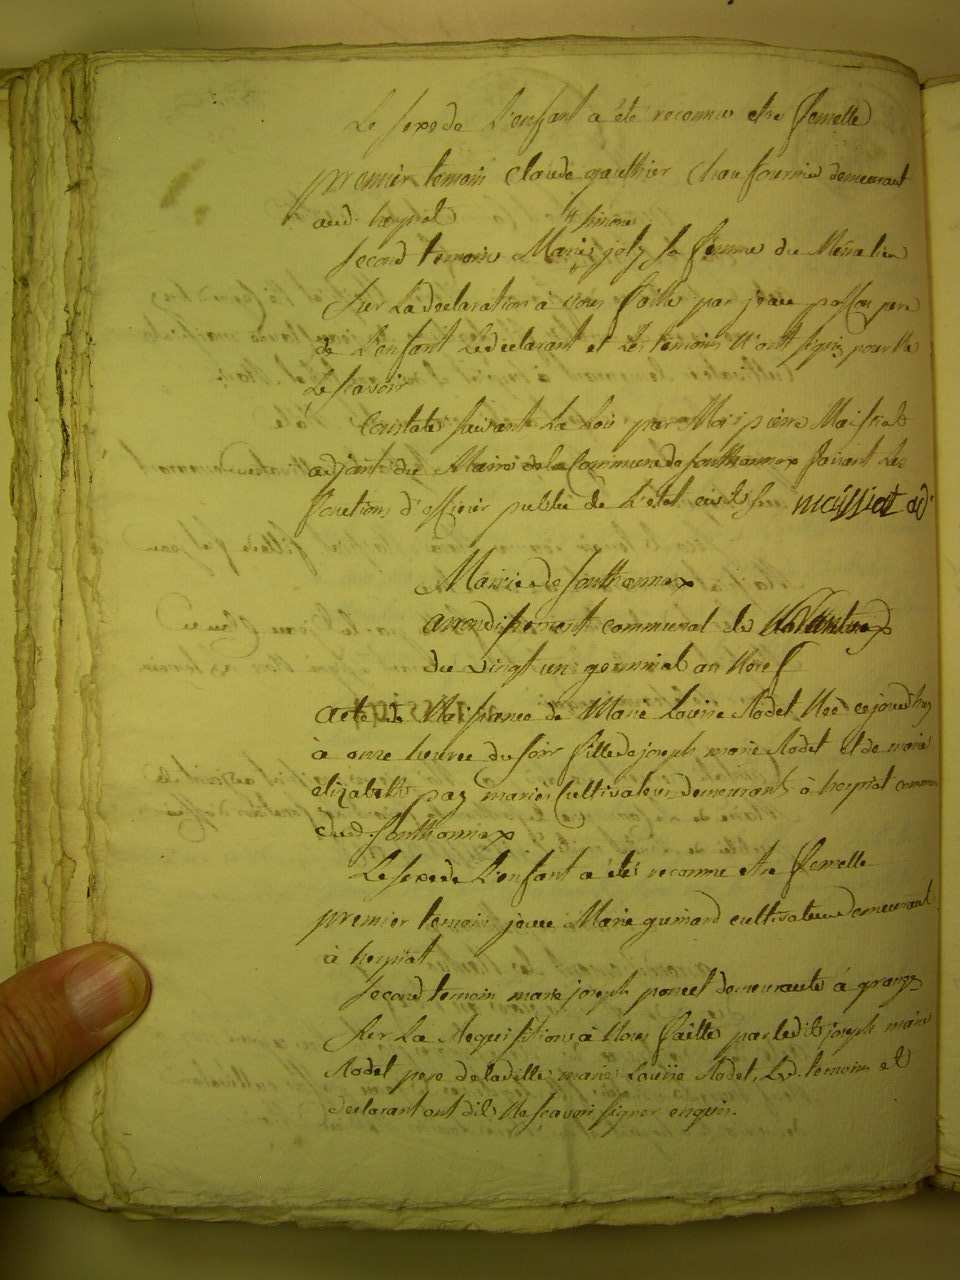 Le sexe de L'enfant a été reconnu etre femelle
premier temoin claude gauthier chaufournier demeurant
aud. heyriat
simone
second temoin Marie joly fe femme du
Sur La declaration à nous faitte par jean pere
de L'enfant Le declarant et Les temoins n'ont signé pour ne
Le scavoir
Constaté suivant La Loi par Moi pierre Maissiat
adjoint du Maire de la Commune de sonthonnax faisant Les
fonctions d'officier public de L'etat civil Maissiat adt
Mairie de sonthonnax
arrondissement communal de Nantua
du vingt un germinal an Onze
acte de Naissance de Marie Louise Rodet Née ce jourdhuy
à onze heures du soir fille de joseph marie Rodet et de marie
elizabeth paz mariés Cultivateurs demeurant à heyriat commune
dud. sonthonnax
Le sexe de L'enfant a été reconnu etre femelle
premier temoin jean Marie guinard cultivateur demeurant
à heyriat
second temoin marie joseph poncet demeurante à grange
Sur La Requisition à Nous faitte par ledit joseph marie
Rodet pere de la fille marie Louise Rodet, Ld. temoins et
declarant ont dit Ne scavoir signer enquis.